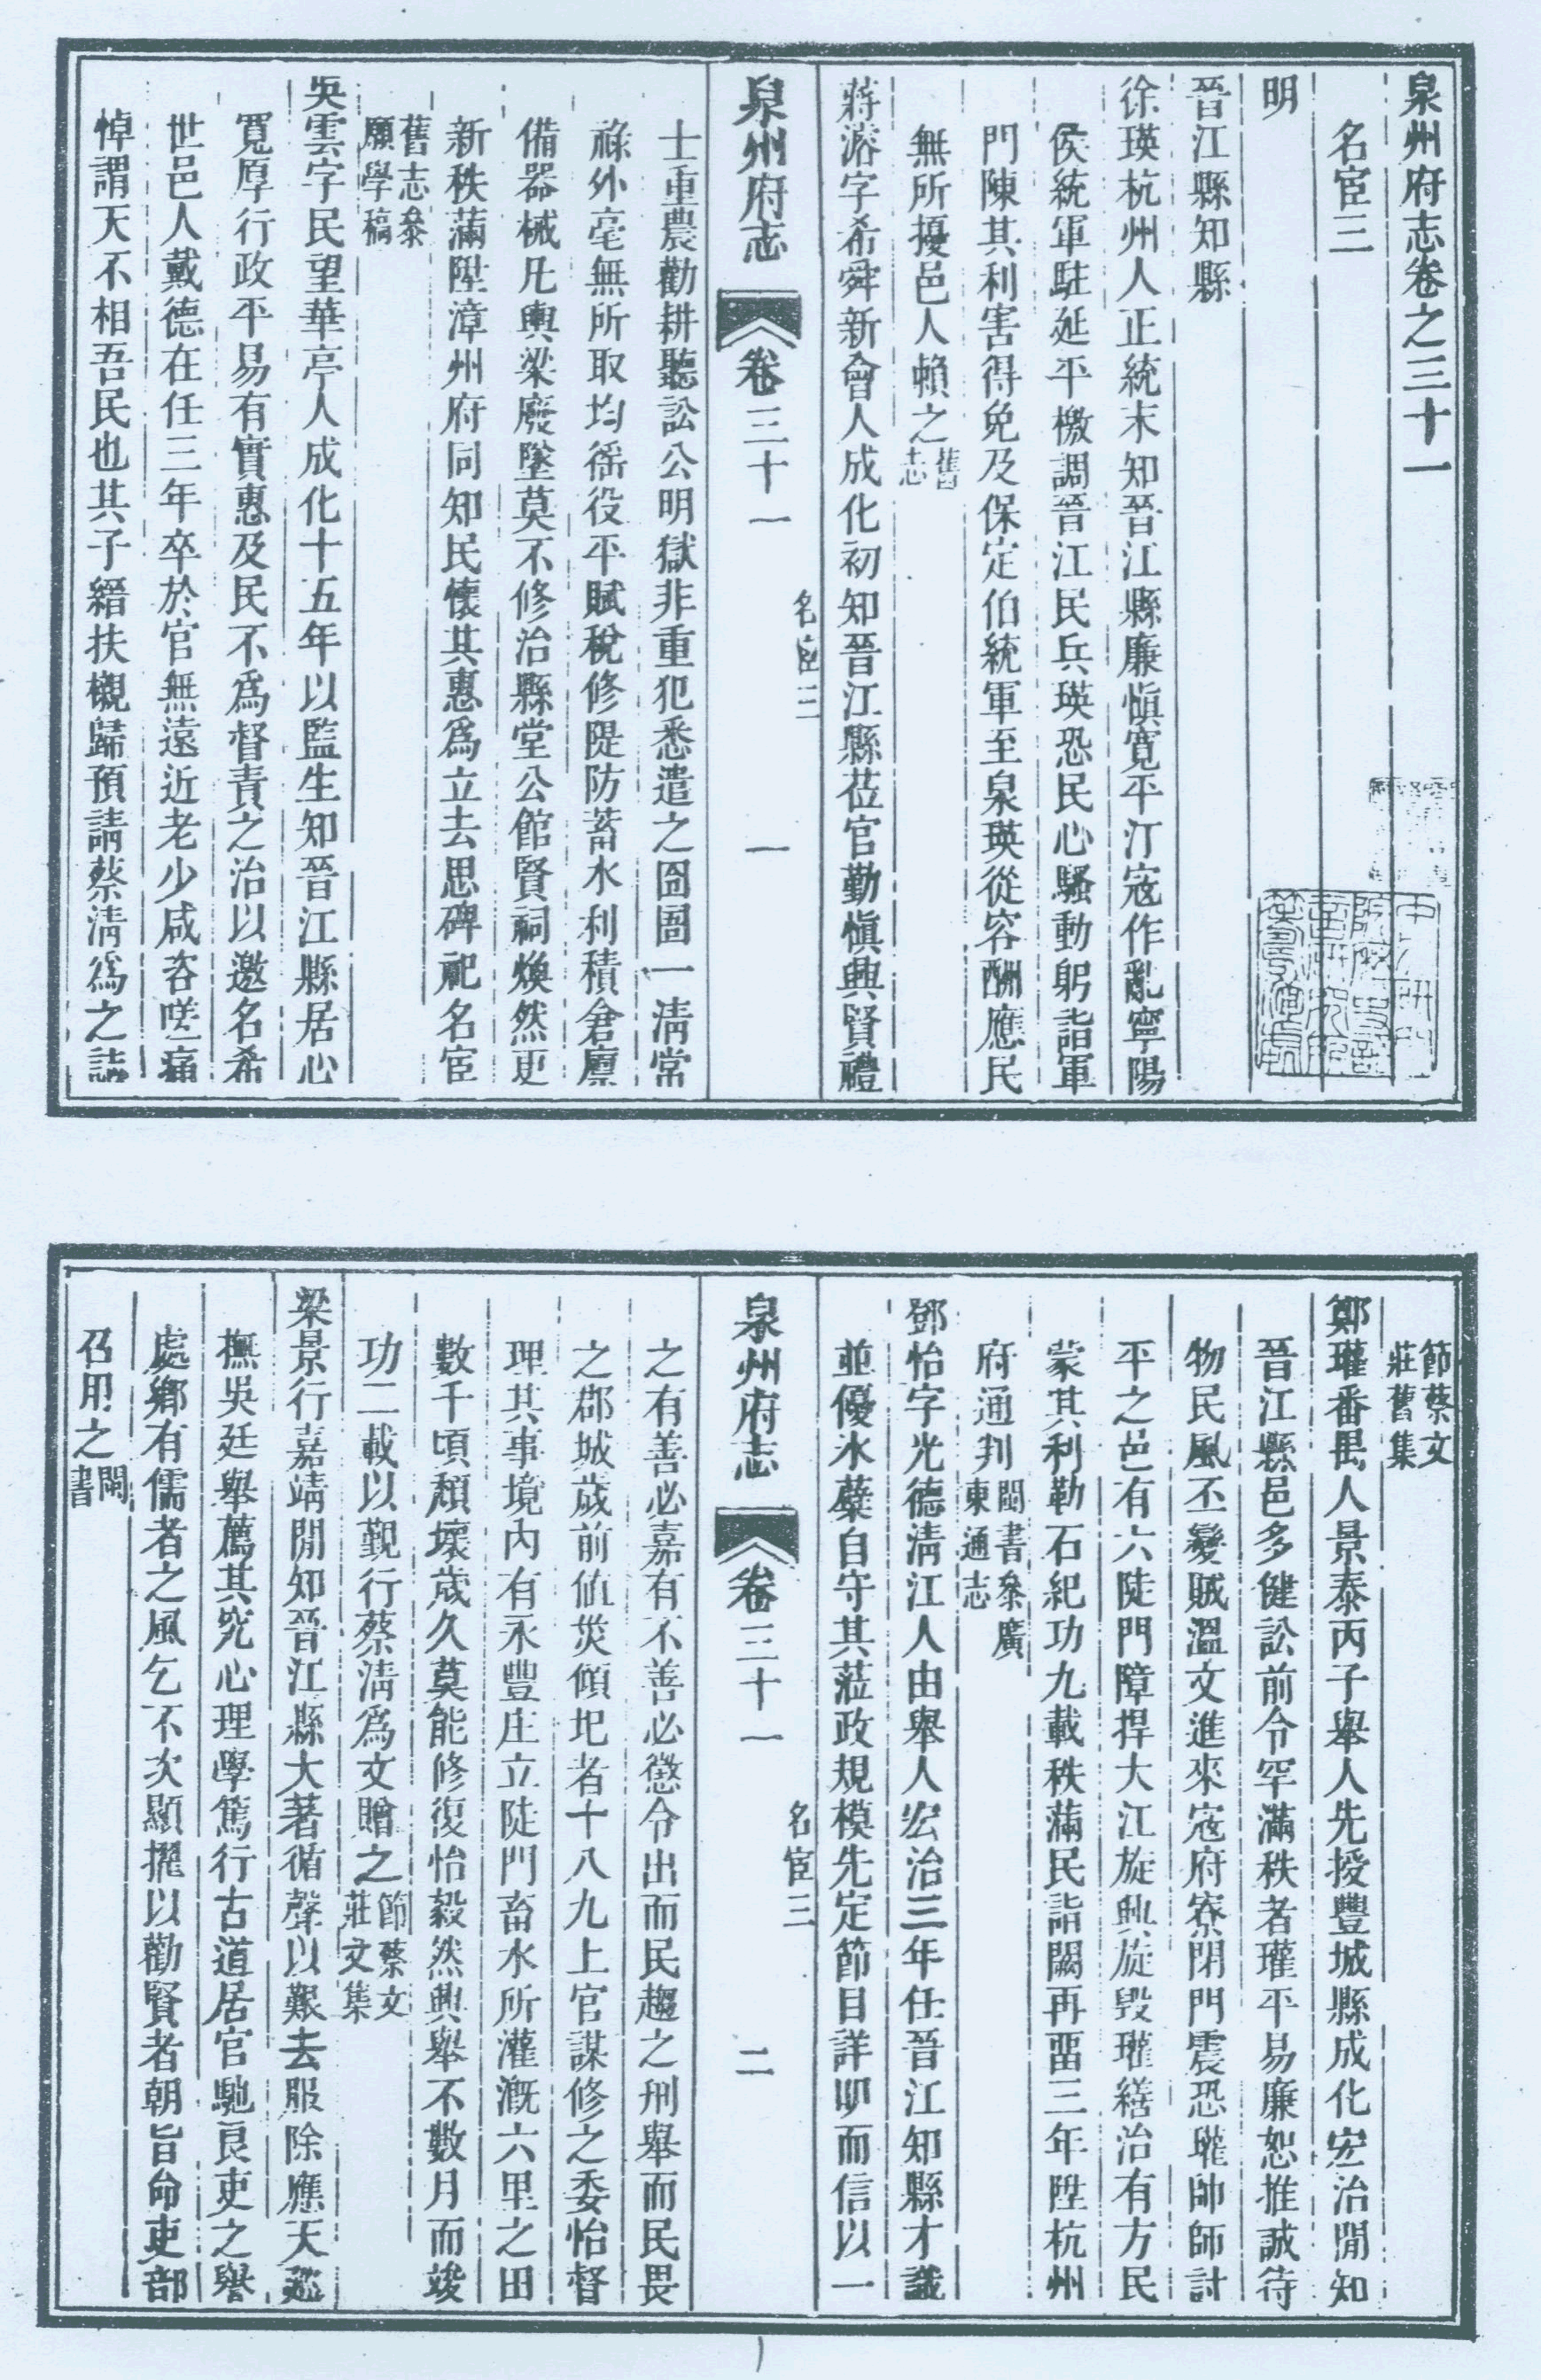 泉州府志卷之三十一
名宦三
明
晉江縣知縣
徐瑛杭州人正統末知晉江縣廉愼寬平汀寇作亂寧陽
侯統軍駐延平檄調晉江民兵瑛恐民心騷動躬詣軍
門陳其利害得免及保定伯統軍至泉瑛從容酬應民
無所擾邑人賴之舊志
蔣濬字希舜新會人成化初知晉江縣莅官勤愼興賢禮
泉州府志 卷三十一 名宦三 一
士重農勸耕聽訟公明獄非重犯悉遣之囹圄一淸常
祿外毫無所取均徭役平賦稅修隄防蓄水利積倉廩
備器械凡輿梁廢墜莫不修治縣堂公館賢祠煥然更
新秩滿陞漳州府同知民懷其惠爲立去思碑祀名宦
舊志叅
願學稿
吳雲字民望華亭人成化十五年以監生知晉江縣居心
寬厚行政平易有實惠及民不爲督責之治以邀名希
世邑人戴德在任三年卒於官無遠近老少咸咨嗟痛
悼謂天不相吾民也其子縉扶櫬歸預請蔡淸爲之誌
節蔡文
莊舊集
鄭瓘番禺人景泰丙子舉人先授豐城縣成化宏治閒知
晉江縣邑多健訟前令罕滿秩者瓘平易廉恕推誠待
物民風丕變賊溫文進來寇府寮閉門震恐瓘帥師討
平之邑有六陡門障捍大江旋興旋毀瓘繕治有方民
蒙其利勒石紀功九載秩滿民詣闕再畱三年陞杭州
府通判閩書叅廣東通志
鄧怡字光德淸江人由舉人宏治三年任晉江知縣才識
並優氷蘗自守其蒞政規模先定節目詳明而信以一
泉州府志 卷三十一 名宦三 二
之有善必嘉有不善必懲令出而民趨之刑舉而民畏
之郡城歲前値災傾圯者十八九上官謀修之委怡督
理其事境內有永豐庄立陡門畜水所灌漑六里之田
數千頃頹壞歲久莫能修復怡毅然興舉不數月而竣
功二載以覲行蔡淸爲文贈之節蔡文莊文集
梁景行嘉靖閒知晉江縣大著循聲以艱去服除應天巡
撫吳廷舉薦其究心理學篤行古道居官馳良吏之譽
處鄉有儒者之風乞不次顯擢以勸賢者朝旨命吏部
召用之閩書